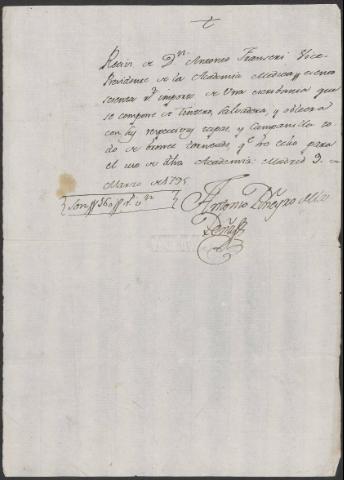 Recivi de Dn. Antonio Franseri Vice-
Presidente de la Academia Medica
sesenta rs. importe de una escribania que
se compone de tintero, salvadera, y oblera
con sus respectivas tapas, y Campanilla to-
do de bronce torneado, qe. he echo para
el uso de dha Academia: Madrid 9. de
Marzo de 1795
Son 360 rs. vn
Antonio